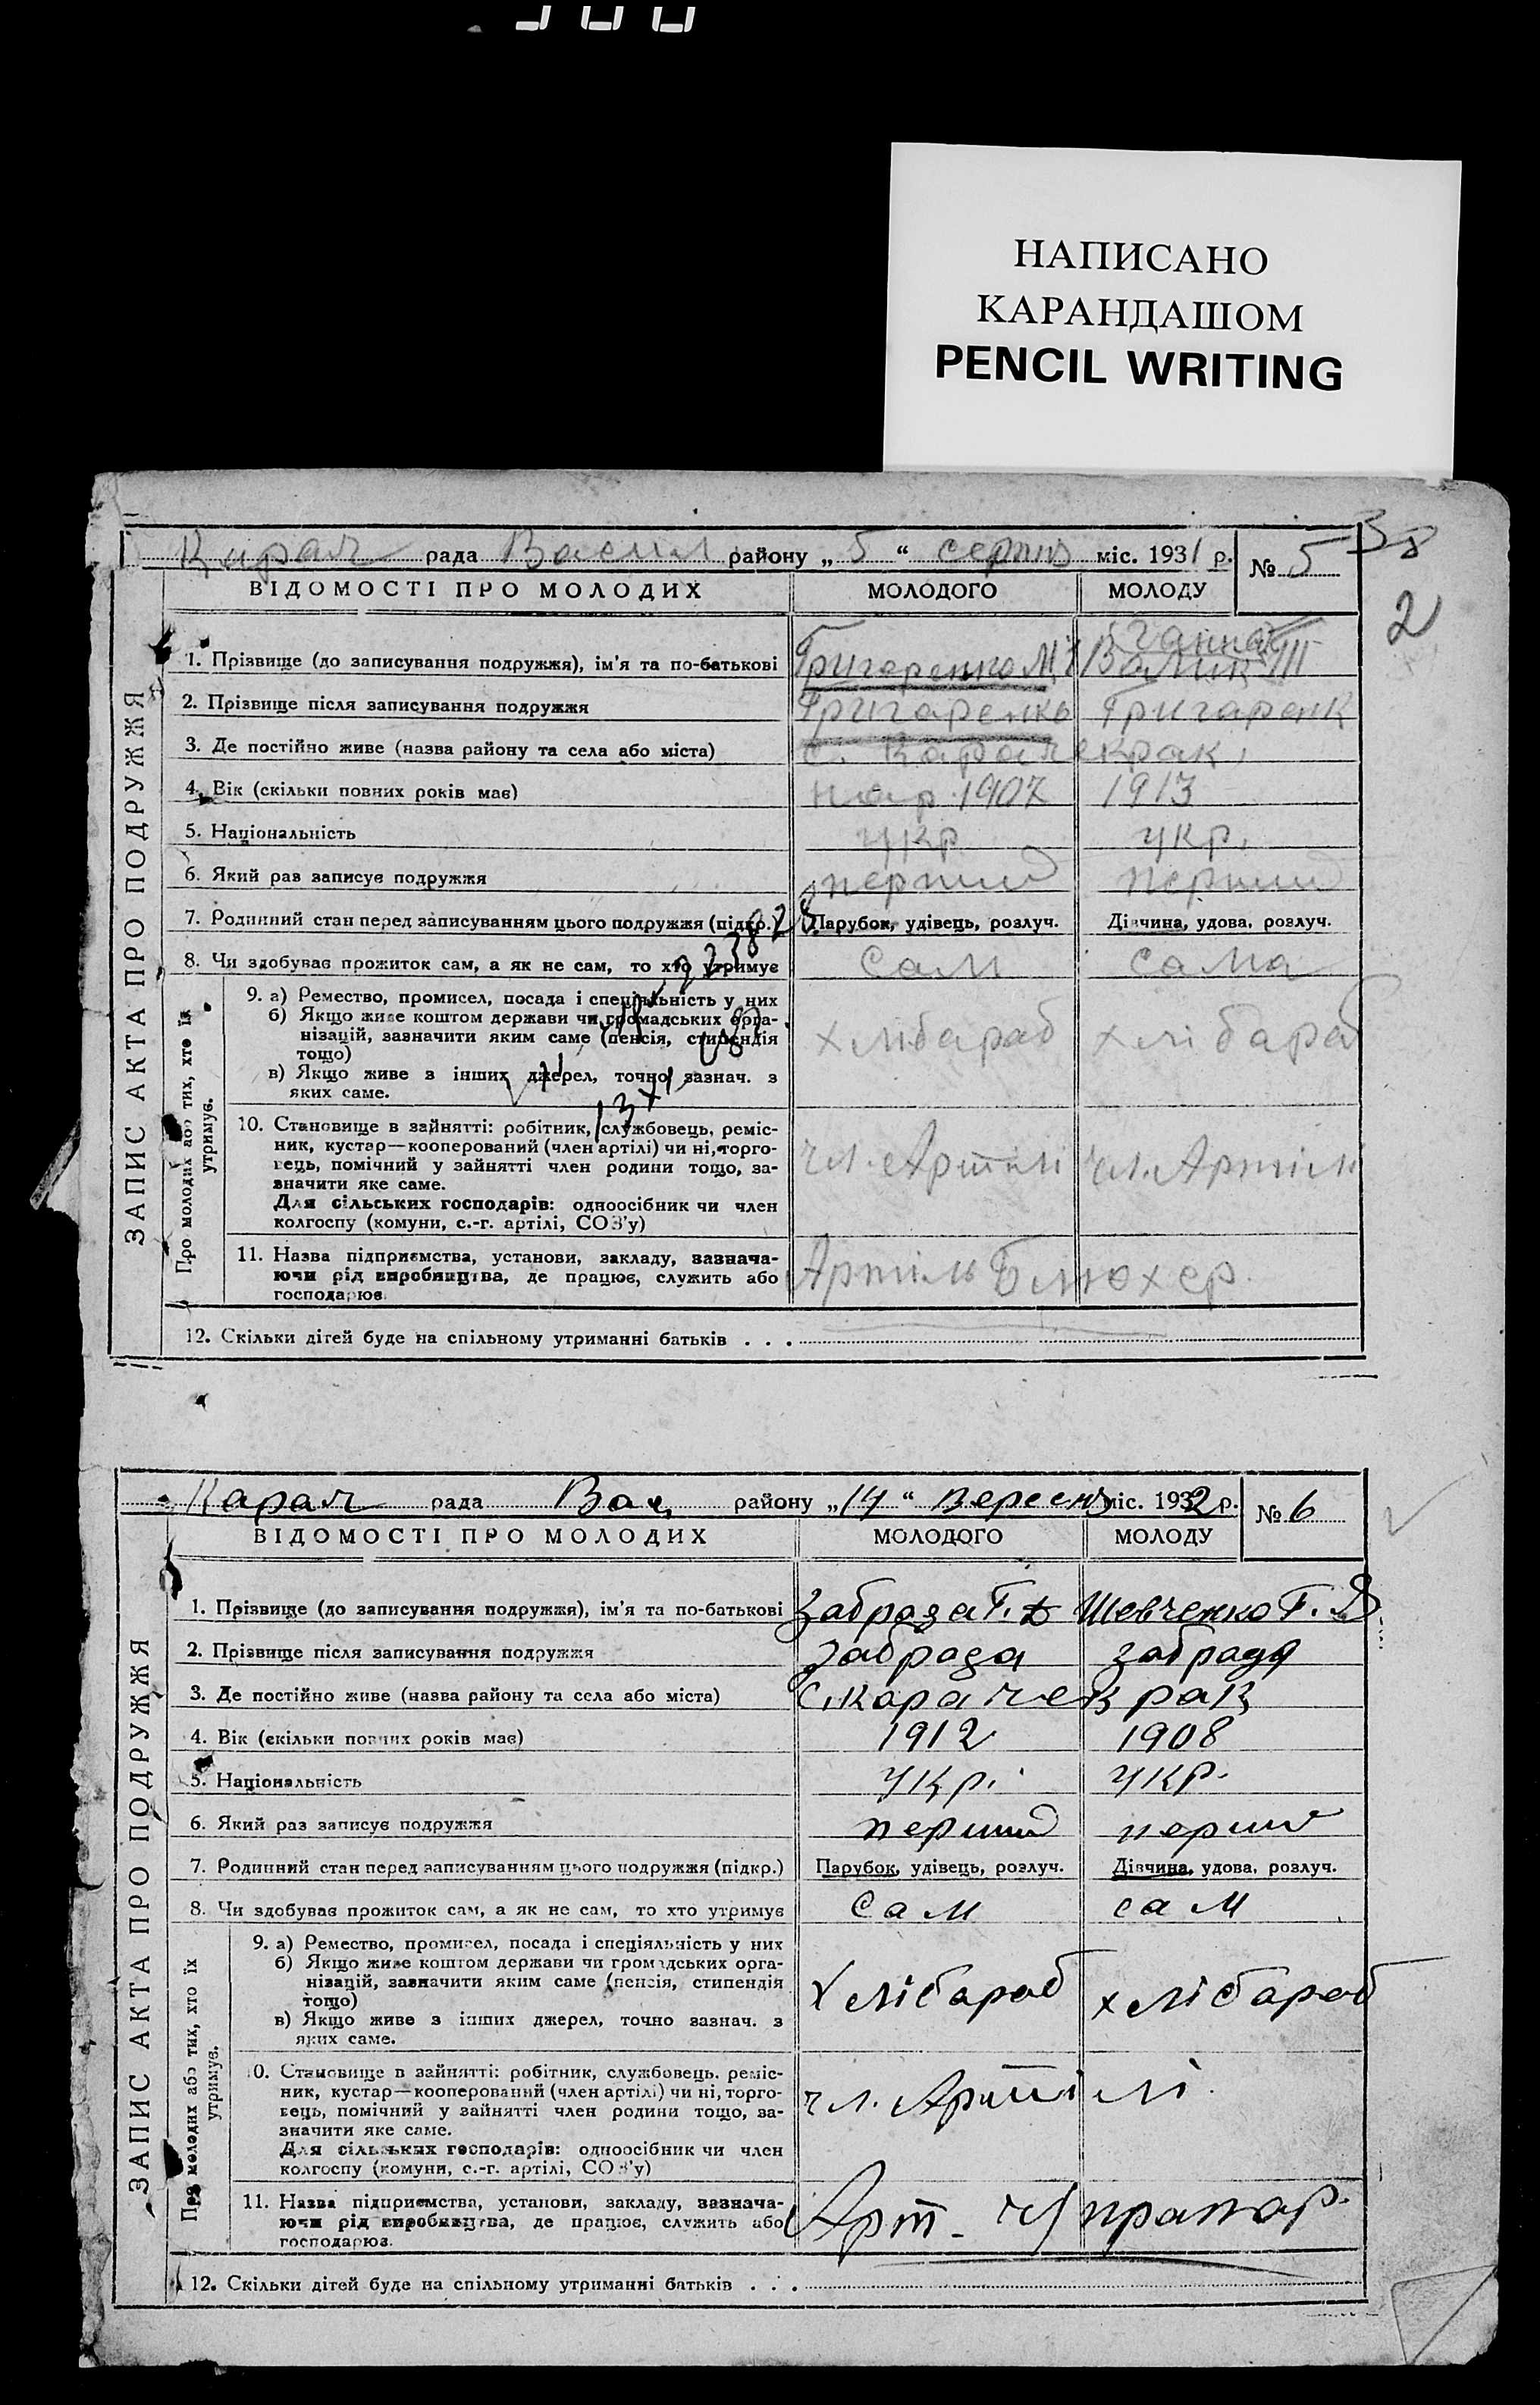 НАПИСАНО
КАРАНДАШОМ
PENCIL WRITING
Карач рада Васил району „ 5 “ серпня міс. 1931 р. № 5
38
2
ВІДОМОСТІ ПРО МОЛОДИХ МОЛОДОГО МОЛОДУ
ЗАПИС АКТА ПРО ПОДРУЖЖЯ
Ганна
1. Прізвище (до записування подружжя), ім'я та по-батькові Григаренко М
2. Прізвище після записування подружжя Григаренко Григаренк
3. Де постійно живе (назва району та села або міста) с. Карачекрак,
4. Вік (скільки повних років має) нар. 1907 1913
5. Національність укр укр.
6. Який раз записує подружжя перший перший
7. Родинний стан перед записуванням цього подружжя (підкр.) Парубок, удівець, розлуч. Дівчина, удова, розлуч.
8. Чи здобуває прожиток сам, а як не сам, то хто утримує сам сама
Про молодих або тих, хто їх утримує.
9. а) Ремество, промисел, посада і спеціяльність у них
б) Якщо живе коштом держави чи громадських орга-
нізацій, зазначити яким саме (пенсія, стипендія
тощо)
хлібараб хлібараб
в) Якщо живе з інших джерел, точно зазнач. з
яких саме.
10. Становище в зайнятті: робітник, службовець, реміс-
ник, кустар—кооперований (член артілі) чи ні, торго-
вець, помічний у зайнятті член родини тощо, за-
значити яке саме.
чл. Артілі чл. Артілі
Для сільських господарів: одноосібник чи член
колгоспу (комуни, с.-г. артілі, СОЗ'у)
11. Назва підприємства, установи, закладу, зазнача-
ючи рід виробництва, де працює, служить або
господарює.
Артіль Блюхер.
12. Скільки дітей буде на спільному утриманні батьків . . .
Карач рада Вас. району „ 14 “ вересня міс. 1932 р. № 6
ВІДОМОСТІ ПРО МОЛОДИХ МОЛОДОГО МОЛОДУ
ЗАПИС АКТА ПРО ПОДРУЖЖЯ
1. Прізвище (до записування подружжя), ім'я та по-батькові Забрада Г. Шевченко Г. Д
2. Прізвище після записування подружжя Забрада Забрада
3. Де постійно живе (назва району та села або міста) С. Карачекрак
4. Вік (скільки повних років має) 1912 1908
5. Національність укр. укр.
6. Який раз записує подружжя перший перший
7. Родинний стан перед записуванням цього подружжя (підкр.) Парубок, удівець, розлуч. Дівчина, удова, розлуч.
8. Чи здобуває прожиток сам, а як не сам, то хто утримує сам сам
Про молодих або тих, хто їх утримує.
9. а) Ремество, промисел, посада і спеціяльність у них
б) Якщо живе коштом держави чи громадських орга-
нізацій, зазначити яким саме (пенсія, стипендія
тощо)
хлібараб хлібараб
в) Якщо живе з інших джерел, точно зазнач. з
яких саме.
10. Становище в зайнятті: робітник, службовець, реміс-
ник, кустар—кооперований (член артілі) чи ні, торго-
вець, помічний у зайнятті член родини тощо, за-
значити яке саме.
чл. Артілі.
Для сільських господарів: одноосібник чи член
колгоспу (комуни, с.-г. артілі, СОЗ'у)
11. Назва підприємства, установи, закладу, зазнача-
ючи рід виробництва, де працює, служить або
господарює.
Арт. Ч/прапор.
12. Скільки дітей буде на спільному утриманні батьків . . .